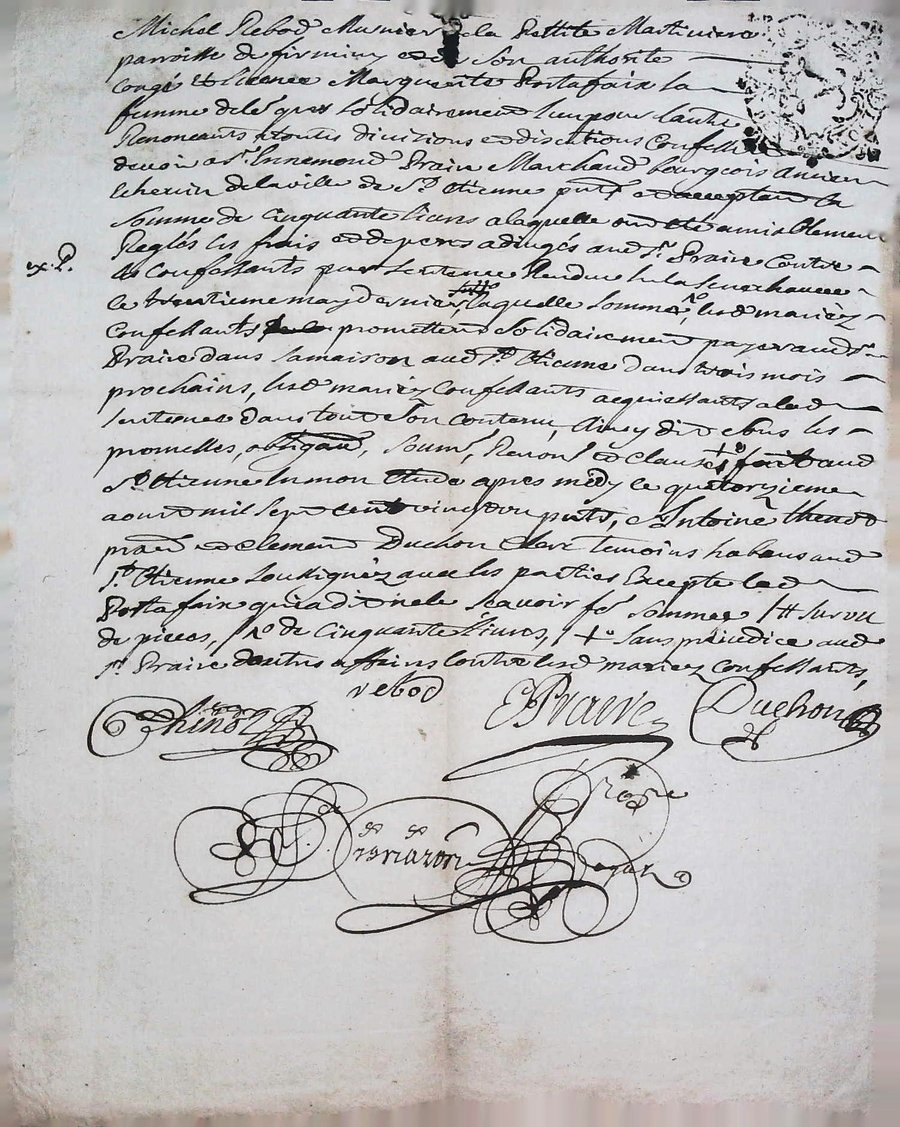 Michel Rebod Musnier de la Pettite Martiniere
parroisse de firminy et de Son authorité
congé et licence Marguerite Portafaix sa
femme de le gres solidairement l'un pour l'autre
Renonceants a toutes divisions et discutions Confess
devoir a Sr. Ennemond Praire Marchand bourgeois ancien
Echevin de la ville de St. Etienne pnt et acceptant la
Somme de cinquante livres a laquelle ont été amiablement
Reglés les frais et depens adiugés aud Sr. Praire Contre
ex. P.
les Confessants par sentence Rendue
le trentieme may dernier, laquelle somme, lesd mariez
Confessants promettent solidairement payer aud Sr
Praire dans sa maison aud St. Etienne dans trois mois
prochains, lesd mariez Confessants acquiessants a lad
sentence dans tout son contenu, Ainsy dit sous les
promesses, obligaon, soum, Renon et clauses fait aud
St. Etienne en mon Etude apres midy le quatorzieme
aoust mil sept cent vingt pnts, Antoine
et Clement Duchon Clerc temoins habitans aud
St. Etienne soussignez avec les parties Excepté lad
Portafaix qui a dit ne le scavoir fe sommee /# sur vu
de pieces, /no de cinquante livres, /+o sans préiudice aud
Sr. Praire dautres affaires Contre lesd mariez confessants,
rebod
EPraire
Duchon